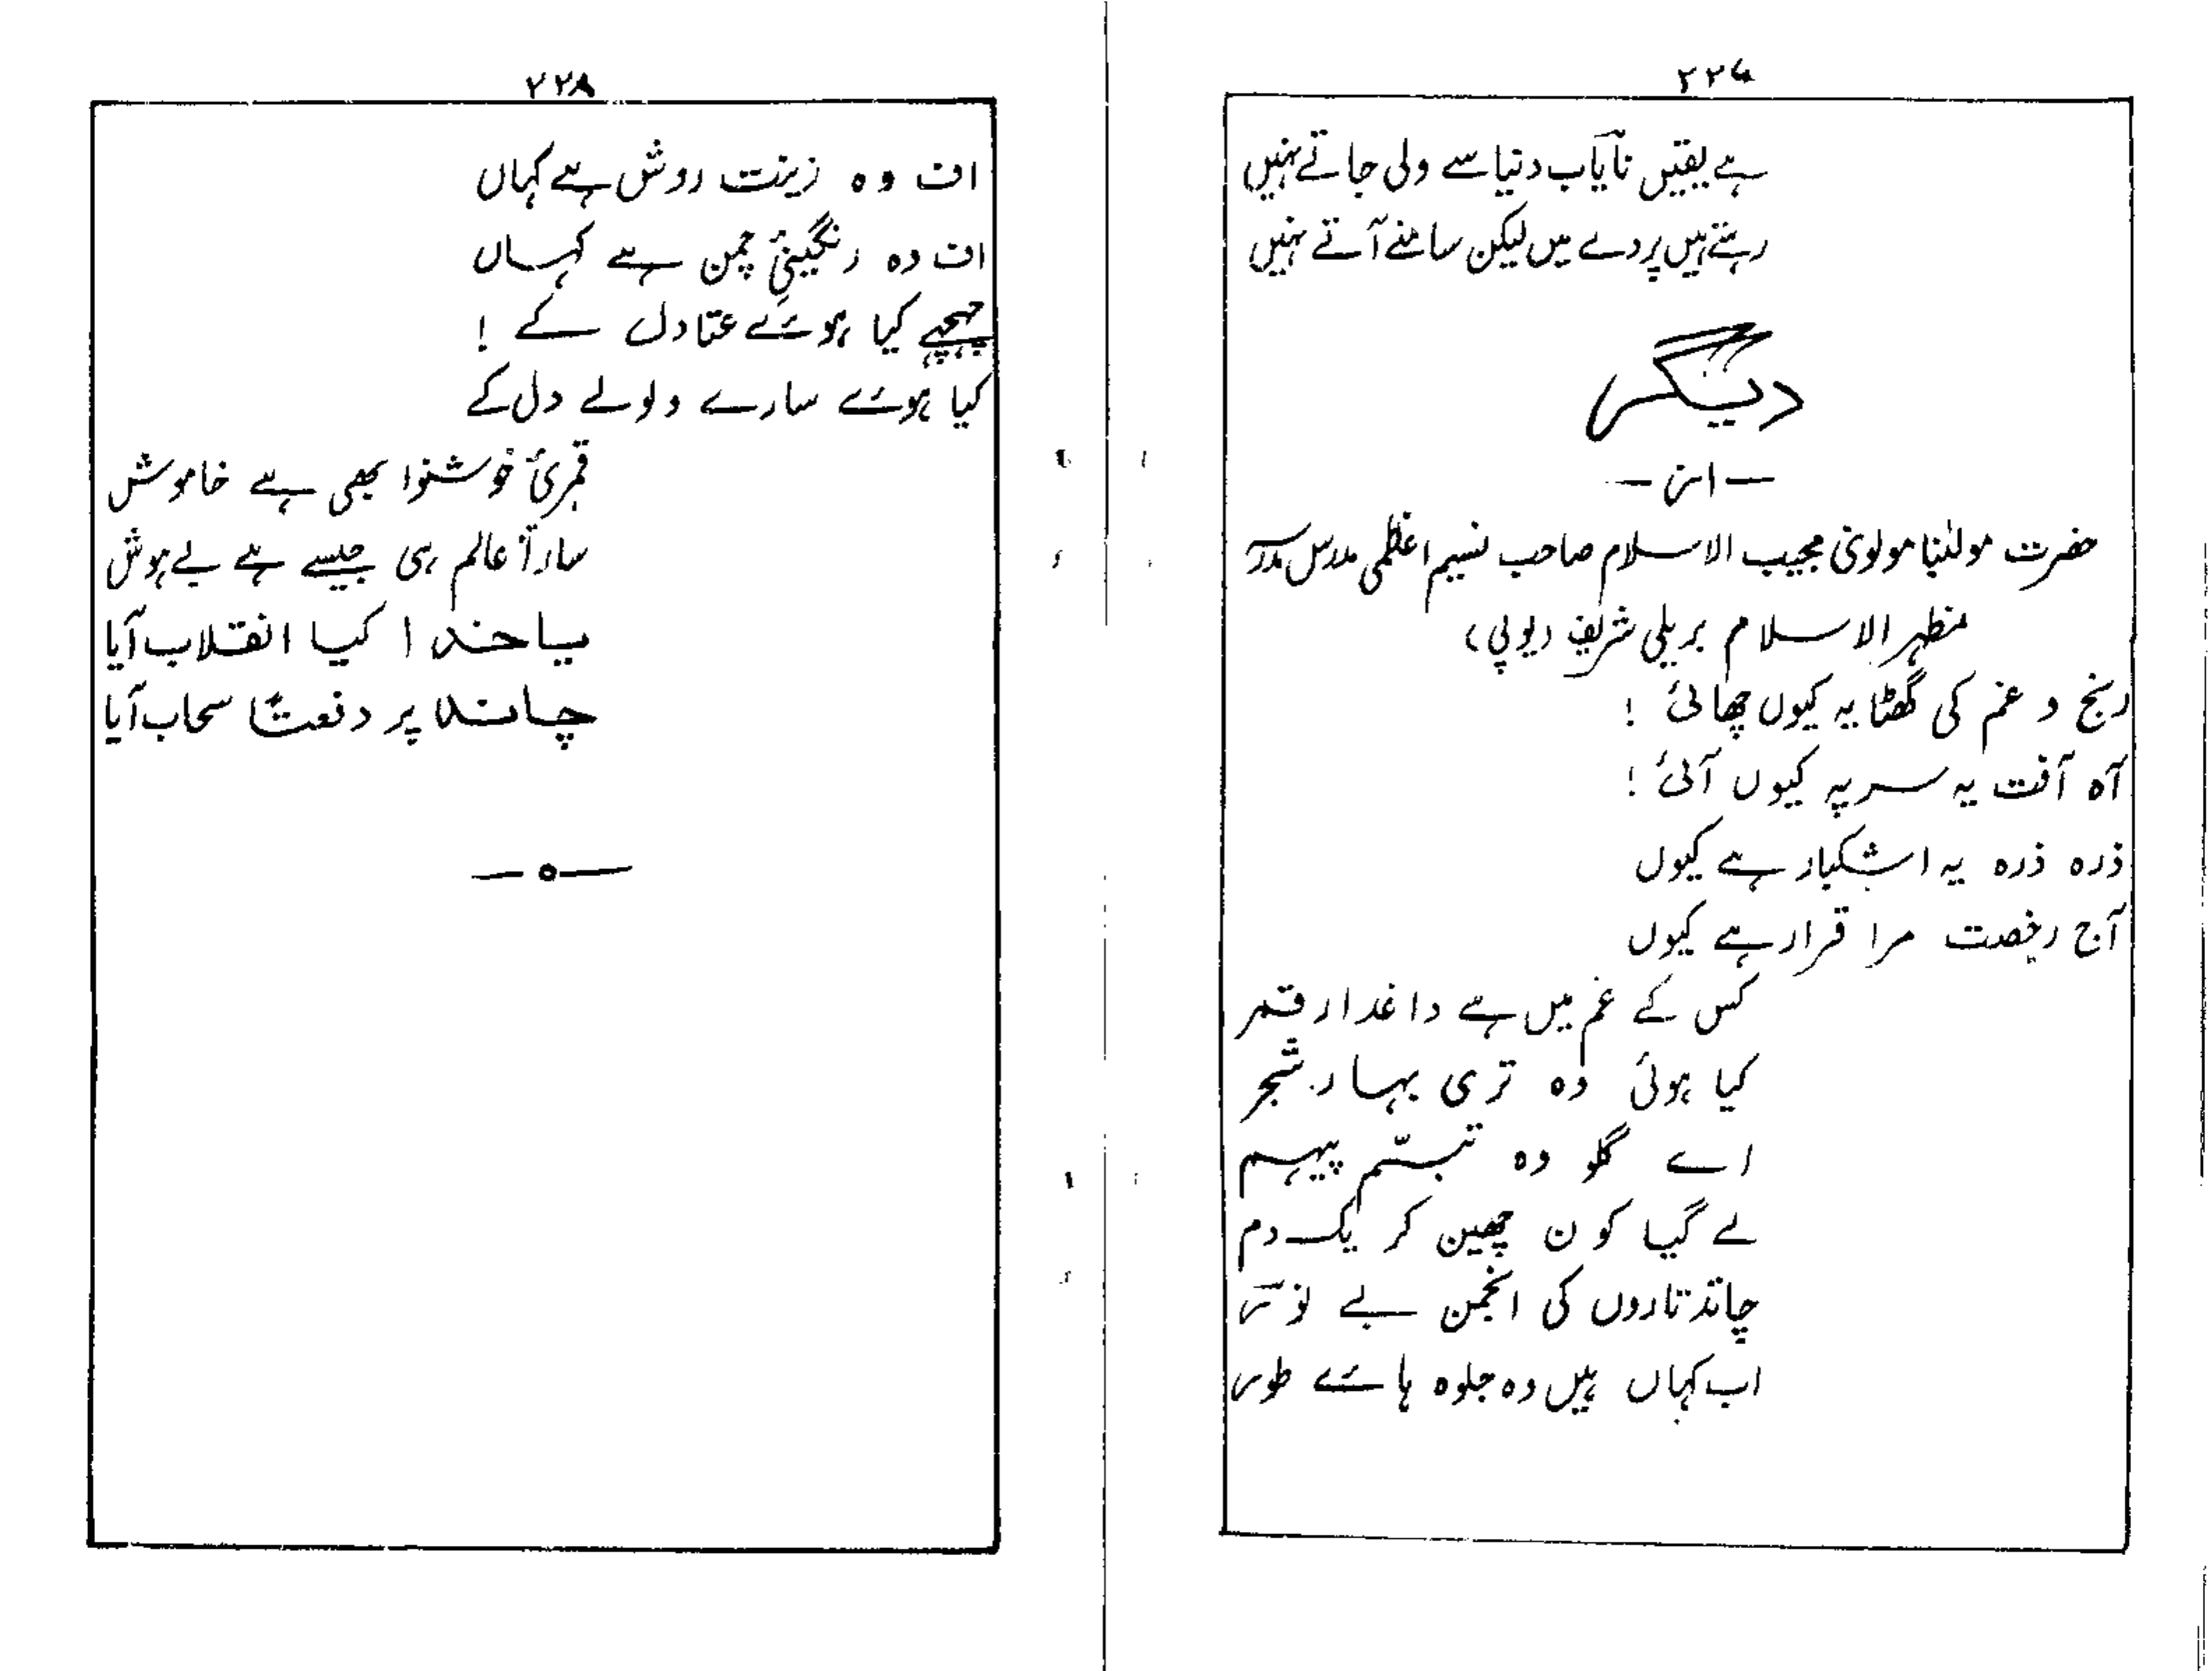 ۲۲۷
ہے یقیں نایاب دنیا سے ولی جاتے نہیں
رہتے ہیں پردے میں لیکن سامنے آتے نہیں
دیگر
— از —
حضرت مولٰینا مولوی مجیب الاسلام صاحب نسیم اعظمی مدرس مدرسہ
منظہر الاسلام بریلی شریف (یوپی)
رنج و غم کی گھٹا یہ کیوں چھائی !
آہ آفت یہ سر پہ کیوں آئی !
ذرہ ذرہ یہ اشکبار ہے کیوں
آج رخصت مرا قرار ہے کیوں
کس کے غم میں ہے داغدار قمر
کیا ہوئی وہ تری بہار شجر
اے گلو وہ تبسّم پیہم
لے گیا کون چھین کر یک دم
چاند تاروں کی انجمن بے نور
اب کہاں ہیں وہ جلوہ ہائے طور
۲۲۸
اف وہ زینت روش ہے کہاں
اف وہ رنگینیٔ چمن ہے کہاں
چہچہے کیا ہوئے عنادل کے !
کیا ہوئے سارے ولولے دل کے
قمریٔ خوشنوا بھی ہے خاموش
سارا عالم ہی جیسے ہے بے ہوش
یا خدا کیا انقلاب آیا
چاند پر دفعتاً سحاب آیا
—ه—